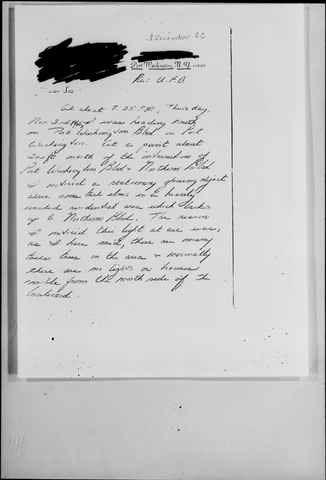 3 December 66
Port Washington, N.Y.
Re: U.F.O.
Dear Sir:
At about 7:25 PM, Thursday,
Nov 3rd I was heading south
on Port Washington Blvd in Port
Washington. At a point about
200 ft north of the intersection of
Port Washington Blvd & Northern Blvd
I noticed a stationary glowing object
some tall elms in a heavily
wooded residential area which
up to Northern Blvd. The reason
I noticed this light at all was,
as I have said, there are many
trees in the area & normally
there are no lights or houses
visible from the north side of the
boulevard.